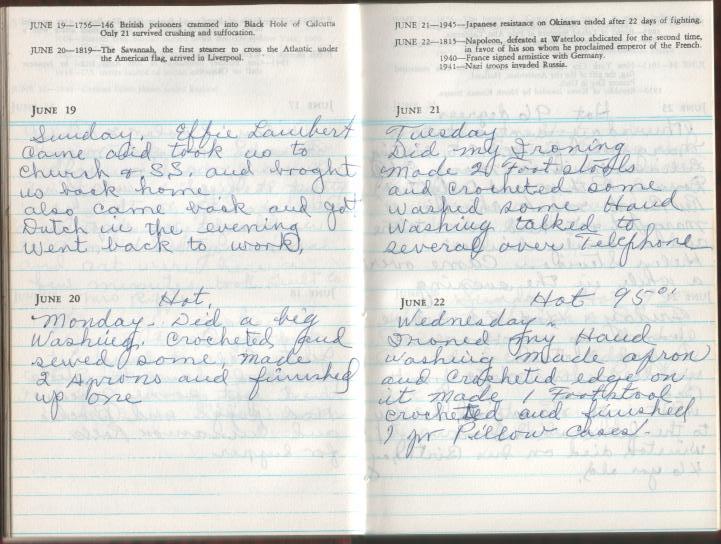 JUNE 19—1756—146 British prisoners crammed into Black Hole of Calcutta
Only 21 survived crushing and suffocation.
JUNE 20—1819—The Savannah, the first steamer to cross the Atlantic under
the American flag, arrived in Liverpool.
JUNE 19
Sunday. Effie Lambert
Came and took us to
Church & SS. and broght
us back home
also came back and got
Dutch in the evening
Went back to work,
JUNE 20
Hot,
Monday. Did a big
Washing, crocheted and
sewed some, made
2 Aprons and finished
up one
JUNE 21—1945—Japanese resistance on Okinawa ended after 22 days of fighting.
JUNE 22—1815—Napoleon, defeated at Waterloo abdicated for the second time,
in favor of his son whom he proclaimed emperor of the French.
1940—France signed armistice with Germany.
1941—Nazi troops invaded Russia.
JUNE 21
Tuesday
Did my Ironing
Made 2 Foot stools
and Crocheted some
Washed some Hand
Washing talked to
several over Telephone
JUNE 22
Hot 95°
Wednesday.
Ironed my Hand
washing made apron
and Crocheted edge on
it made 1 Footstool
crocheted and finished
1 pr Pillow Cases.